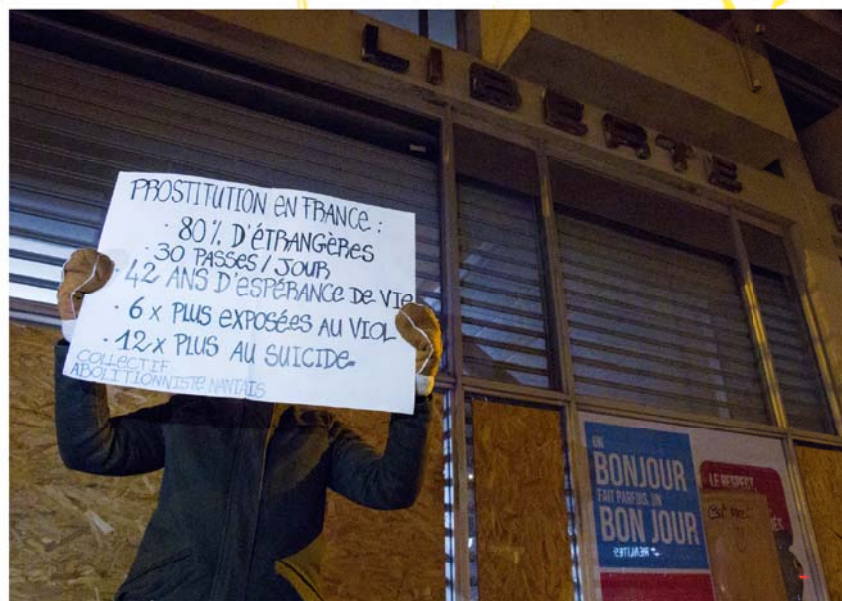 LIBERTE
PROSTITUTION EN FRANCE :
· 80% D'ÉTRANGÈRES
· 30 PASSES / JOUR
· 42 ANS D'ESPÉRANCE DE VIE
· 6 x PLUS EXPOSÉES AU VIOL
· 12 x PLUS AU SUICIDE
COLLECTIF
ABOLITIONNISTE NANTAIS
UN
BONJOUR
FAIT PARFOIS UN
BON JOUR
REALITES
LE RESPECT